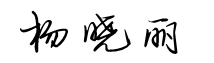 杨晓丽